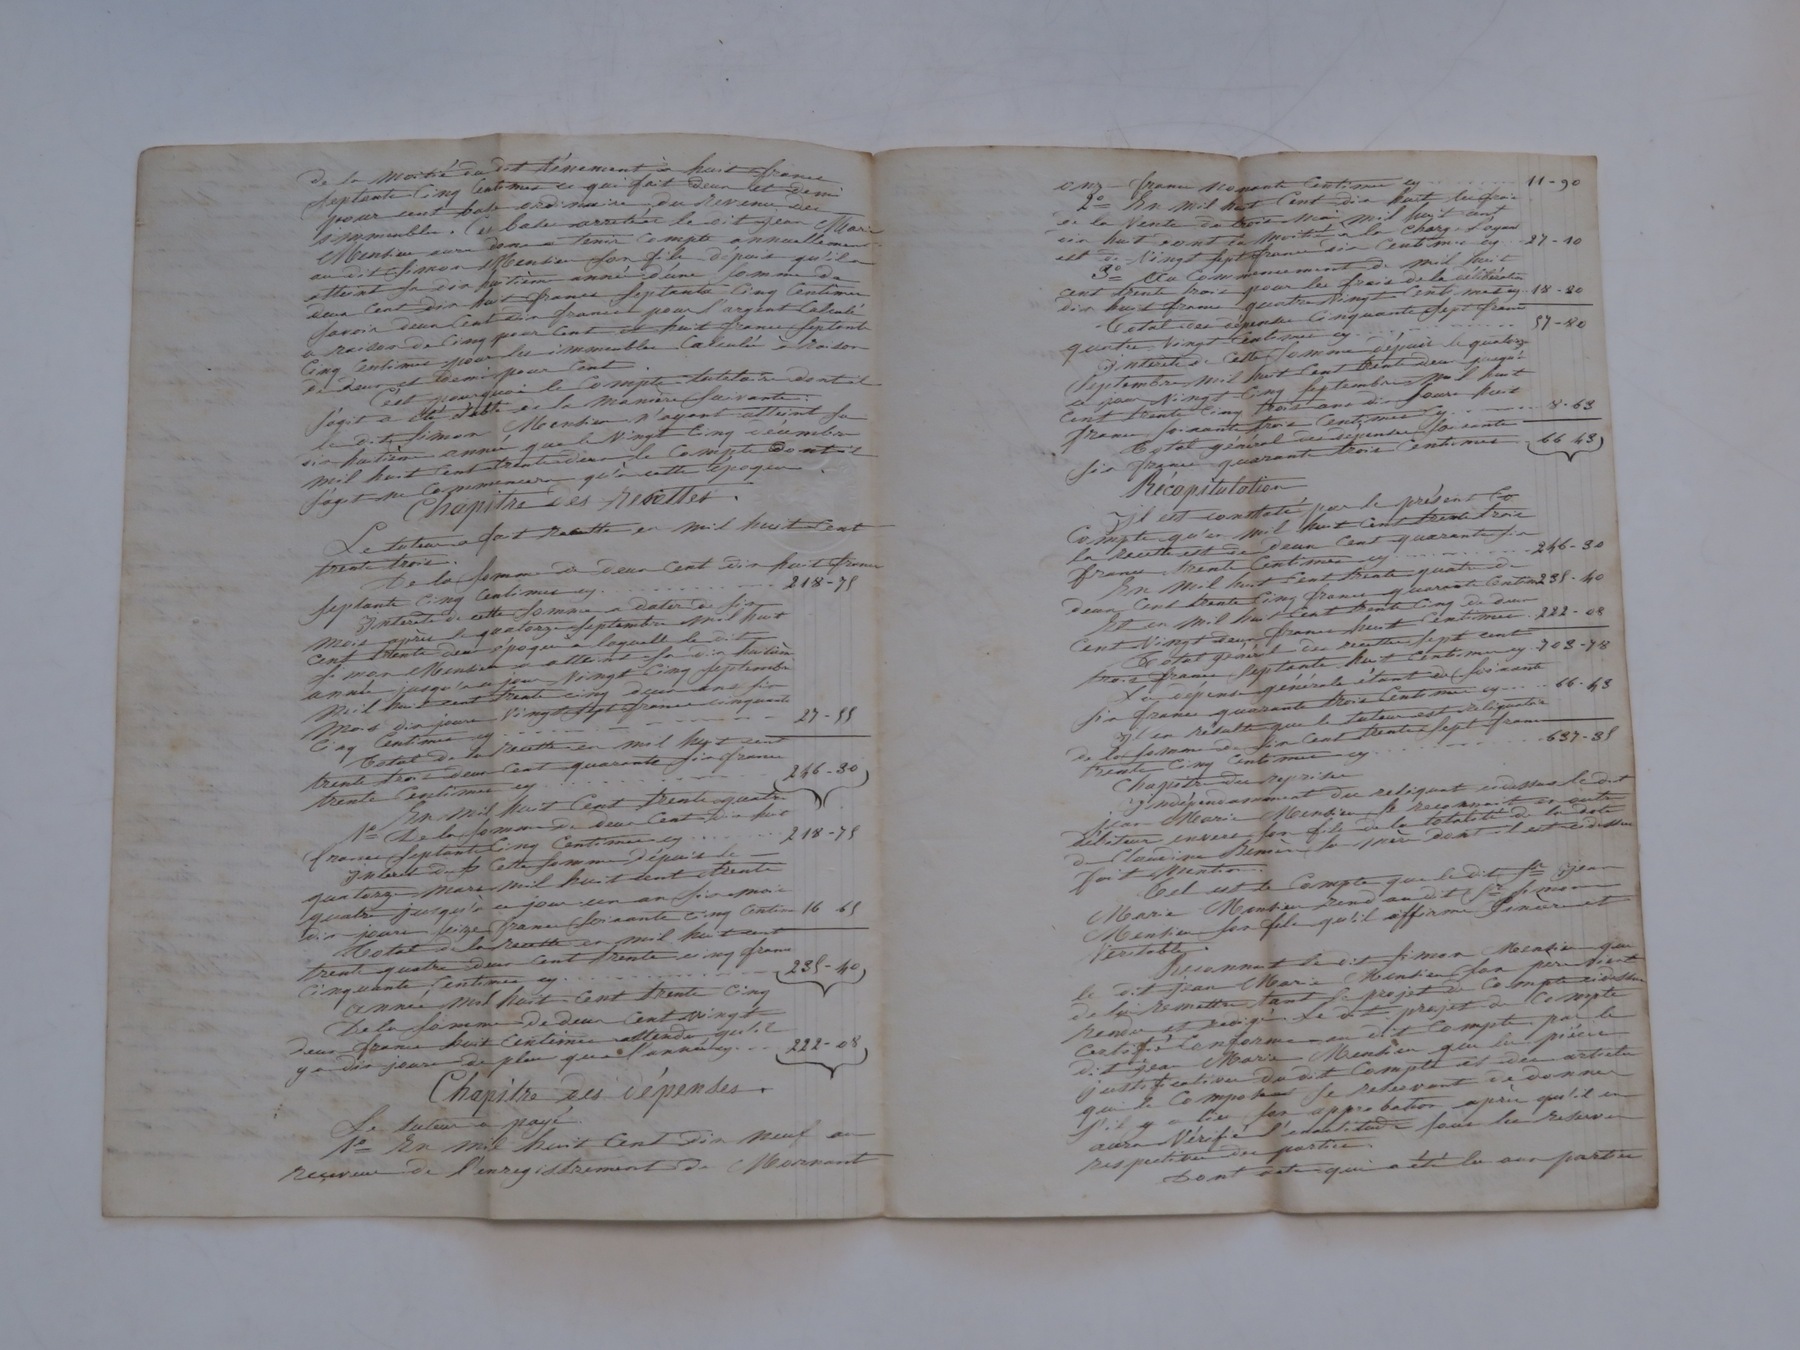 de la moitié du dit tènement à huit francs
septante cinq centimes ce qui fait deux et demi
pour cent base ordinaire du revenu des
immeubles. Ces bases arrêtées le dit Jean Marie
Mensieu aura donc à tenir compte annuellement
au dit Simon Mensieu son fils depuis qu'il a
atteint sa dix huitième année d'une somme de
deux cent dix huit francs septante cinq centimes
savoir deux cent dix francs pour l'argent calculé
à raison de cinq pour cent et huit francs septante
cinq centimes pour les immeubles calculés à raison
de deux et demi pour cent.
C'est pourquoi le compte tutelaire dont il
s'agit a été établi de la manière suivante:
le dit Simon Mensieu n'ayant atteint sa
dix huitième année que le vingt cinq décembre
mil huit cent trente deux le compte dont il
s'agit ne commencera qu'à cette époque.
Chapitre des recettes.
Le tuteur a fait recette en mil huit cent
trente trois.
De la somme de deux cent dix huit francs
septante cinq centimes cy 218-75
Intérêts de cette somme à dater de six
mois après le quatorze septembre mil huit
cent trente deux époque à laquelle le dit
Simon Mensieu a atteint sa dix huitième
année jusqu'à ce jour vingt cinq septembre
mil huit cent trente cinq deux ans six
mois dix jours vingt sept francs cinquante
cinq centimes cy 27-55
Total de la recette en mil huit cent
trente trois deux cent quarante six francs
trente centimes cy 246-30
En mil huit cent trente quatre
1° De la somme de deux cent dix huit
francs septante cinq centimes cy 218-75
Intérêt de cette somme depuis le
quatorze mars mil huit cent trente
quatre jusqu'à ce jour un an six mois
dix jours seize francs soixante cinq centimes 16 65
Total de la recette en mil huit cent
trente quatre deux cent trente cinq francs
cinquante centimes cy 235-40
Année mil huit cent trente cinq
De la somme de deux cent vingt
deux francs huit centimes attendu qu'il
y a dix jours de plus que l'année cy 222-08
Chapitre des dépenses.
Le tuteur a payé.
1° En mil huit cent dix neuf au
receveur de l'enregistrement de Mornant
onze francs nonante centimes cy 11-90
2° En mil huit cent dix huit les frais
de la vente du trois mai mil huit cent
dix huit dont la moitié à la charge
est de vingt sept francs dix centimes cy 27-10
3° Au commencement de mil huit
cent trente trois pour les frais de la délibération
dix huit francs quatre vingt centimes cy 18-80
Total des dépenses cinquante sept francs
quatre vingt centimes cy 57-80
Intérêts de cette somme depuis le quatorze
septembre mil huit cent trente deux jusqu'à
ce jour vingt cinq septembre mil huit
cent trente cinq trois ans dix jours huit
francs soixante trois centimes cy 8-63
Total général des dépenses soixante
six francs quarante trois centimes 66 43
Récapitulation
Il est constaté par le présent
compte qu'en mil huit cent trente trois
la recette est de deux cent quarante six
francs trente centimes cy 246-30
En mil huit cent trente quatre de
deux cent trente cinq francs quarante centimes 235-40
Et en mil huit cent trente cinq de deux
cent vingt deux francs huit centimes 222-08
Total général des recettes sept cent
trois francs septante huit centimes cy 703-78
La dépense générale étant de soixante
six francs quarante trois centimes cy 66-43
Il en résulte que le tuteur est reliquataire
de la somme de six cent trente sept francs
trente cinq centimes cy 637-35
Chapitre des reprises
Indépendamment du reliquat cidessus le dit
Jean Marie Mensieu se reconnait en outre
débiteur envers son fils de la totalité de la dote
de Claudine sa mère dont il est cidessus
fait mention.
Tel est le compte que le dit Sr Jean
Marie Mensieu rend au dit Sr Simon
Mensieu son fils qu'il affirme sincère et
véritable.
Reconnait le dit Simon Mensieu que
le dit Jean Marie Mensieu son père vient
de lui remettre tant le projet de compte cidessus
rendu et rédigé. Le dit projet de compte
certifié conforme au dit compte par le
dit Jean Marie Mensieu que les pièces
justificatives du dit compte et des articles
qui le composent se réservant de donner
s'il y a lieu son approbation après qu'il en
aura vérifié l'exactitude sous les réserves
respectives des parties.
Dont acte qui a été lu aux parties